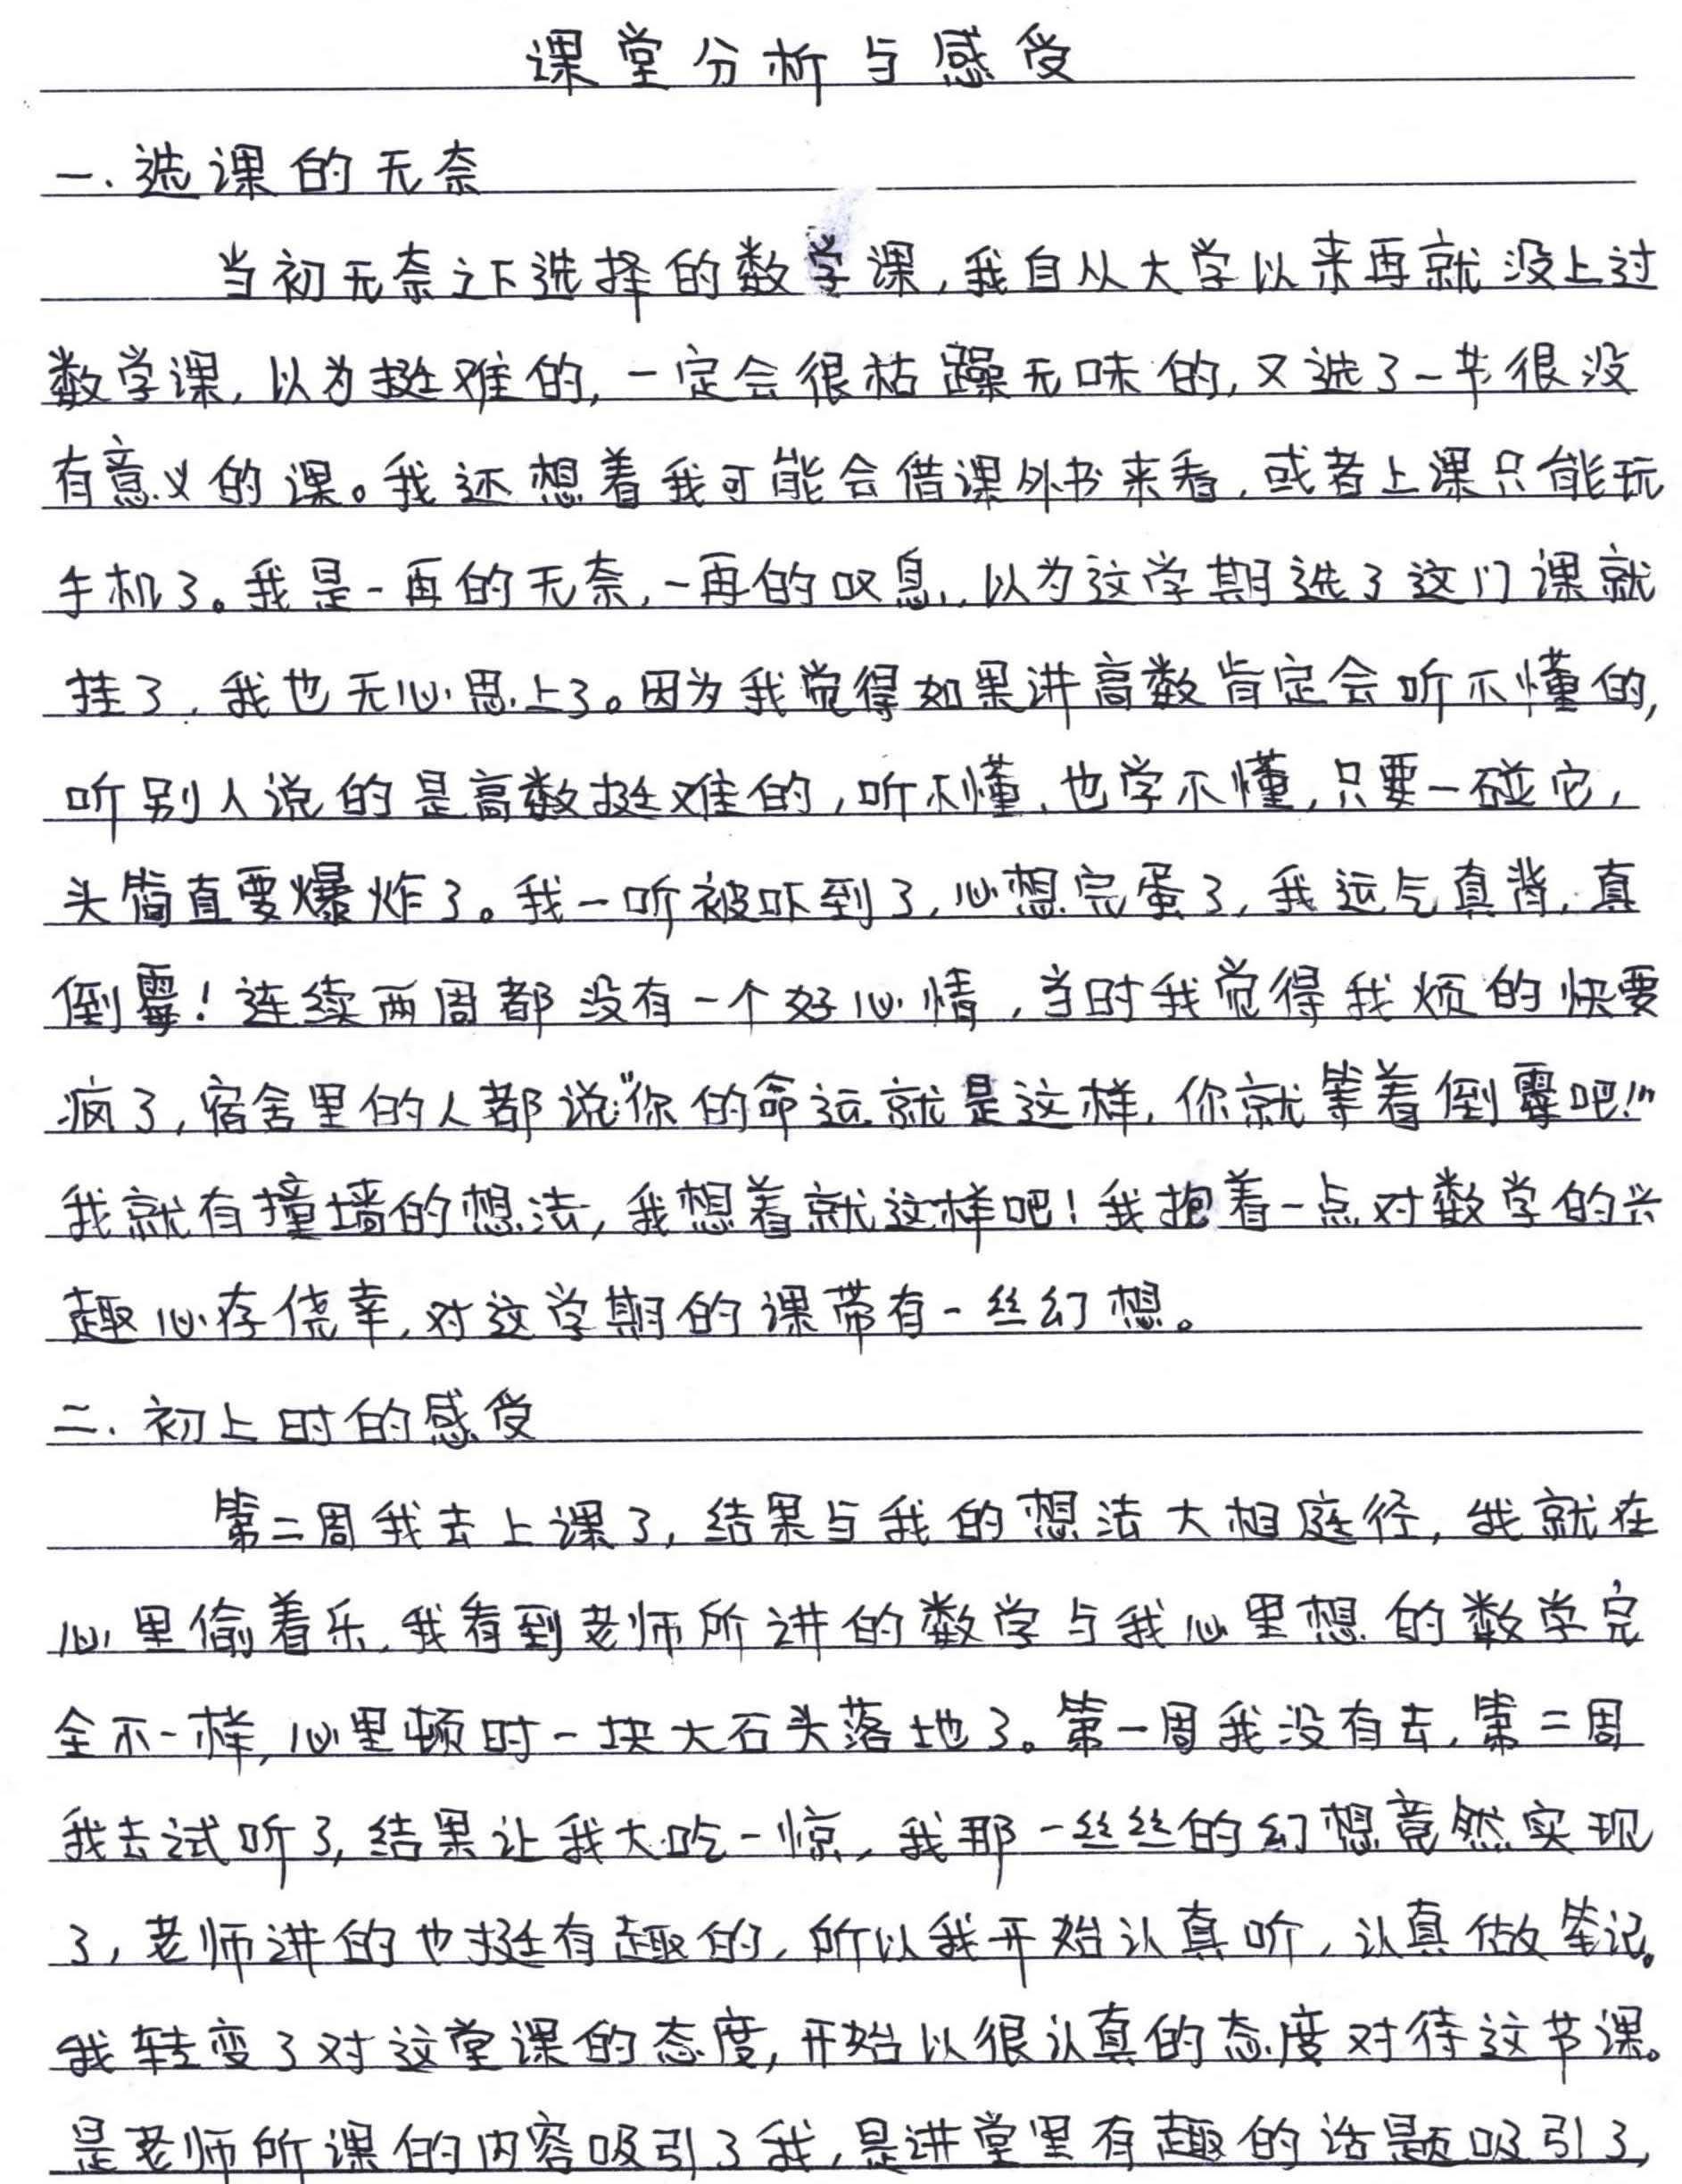 课堂分析与感受
一.选课的无奈
当初无奈之下选择的数学课,我自从大学以来再就没上过
数学课,以为挺难的,一定会很枯躁无味的,又选了一节很没
有意义的课。我还想着我可能会借课外书来看,或者上课只能玩
手机了。我是一再的无奈,一再的叹息,以为这学期选了这门课就
挂了,我也无心思上了。因为我觉得如果讲高数肯定会听不懂的,
听别人说的是高数挺难的,听不懂、也学不懂,只要一碰它,
头简直要爆炸了。我一听被吓到了,心想完蛋了,我运气真背,真
倒霉!连续两周都没有一个好心情,当时我觉得我烦的快要
疯了,宿舍里的人都说“你的命运就是这样,你就等着倒霉吧!”
我就有撞墙的想法,我想着就这样吧!我抱着一点对数学的兴
趣心存侥幸,对这学期的课带有一丝幻想。
二.初上时的感受
第二周我去上课了,结果与我的想法大相庭径,我就在
心里偷着乐,我看到老师所讲的数学与我心里想的数学完
全不一样,心里顿时一块大石头落地了。第一周我没有去,第二周
我去试听了,结果让我大吃一惊,我那一丝丝的幻想竟然实现
了,老师讲的也挺有趣的,所以我开始认真听,认真做笔记。
我转变了对这堂课的态度,开始以很认真的态度对待这节课。
是老师所课的内容吸引了我,是讲堂里有趣的话题吸引了,